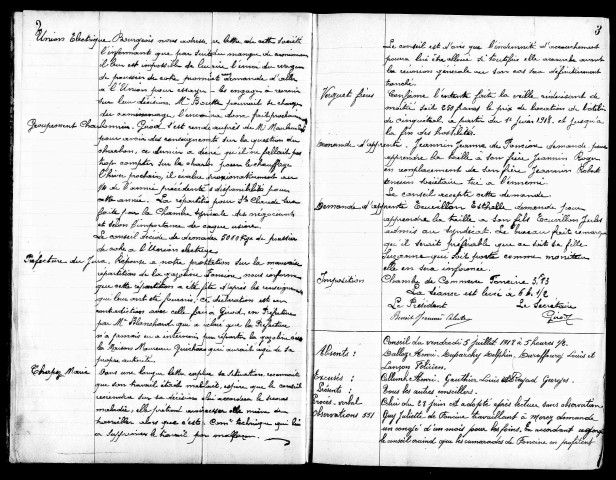 2
Union Electrique Bourgeois nous adresse la lettre de cette société
l'informant que par suite du manque de camions
il leur est impossible de lui faire l'envoi du wagon
de poussier de coke promis. Demande d'aller
à l'Union pour essayer de les engager à revenir
sur leur décision. Mr pourrait se charger
du camionnage, l'envoi se ferait prochain
Groupement Charbonnier. Girod s'est rendu auprès de Mr
pour avoir des renseignements sur la question du
charbon, ce dernier a déclaré qu'il ne fallait pas
trop compter sur le charbon pour le chauffage
l'hiver prochain, il sera proportionnellement au
% de l'année précédente et disponibilités pour
cette année. La répartition pour St Claude sera
faite par la Chambre Syndicale des négociants
et selon l'importance de chaque usine.
Le conseil décide de demander 5000 Kgs de poussier
de coke à l'Union électrique
Préfecture du Jura. Réponse à notre protestation sur la mauvaise
répartition de la gazoline Foncine, nous informe
que cette répartition a été faite d'après les renseignements
qui leur ont été fournis. Cette déclaration est en
contradiction avec celle faite à Girod, en Préfecture
par Mr Blanchard qui a assuré que la Préfecture
n'a jamais eu à intervenir pour répartir la gazoline à
la Maison Monneur qui aurait agi de sa
propre autorité.
Chapez Marie Dans une longue lettre expose sa situation racontant
que son travail était insuffisant, espère que le conseil
reviendra sur sa décision lui accordera le secours
maladie, elle prétend avoir cessé elle même de
travailler alors que c'est la Com. technique qui lui
a supprimé le travail pour malfaçon.
3
Le conseil est d'avis que l'indemnité d'accouchement
pourra lui être allouée si toutefois elle accouche avant
la réunion générale où son cas sera définitivement
tranché.
Vuquet frères Confirme l'entente faite la veille, réduisant de
moitié soit 250 francs le prix de location de l'atelier
de Cinquétral, à partir du 1er Juin 1918, et jusqu'à
la fin des hostilités.
Demande d'apprentie. Jeannin Jeanne de Foncine demande pour
apprendre la taille à son frère Jeannin Roger
en remplacement de son frère Jeannin Robert
ancien sociétaire tué à l'ennemi.
Le conseil accepte cette demande.
Demande d'apprentie Écuvillon Esther demande pour
apprendre la taille à son fils Ecuvillon Jules
admis au syndicat. Le bureau fait remarquer
qu'il serait préférable que ce soit sa fille
Suzanne qui soit portée comme monitrice
elle en sera informée.
Imposition Chambre de Commerce Foncine 3,93
La séance est levée à 6h. 1/2
Le Président Le Secrétaire
Girod
Conseil du vendredi 5 juillet 1918 à 5 heures 1/2.
Absents: Dalloz Henri, Duparchy Delphin, Duraffourg Louis et
Lançon Félicien.
Excusés: Henri, Gauthier Louis et Georges.
Présents: Tous les autres conseillers.
Procès-verbal Celui du 23 juin est adopté après lecture, sans observation
Observations 551 Guy Juliette de Foncine travaillant à Morez demande
un congé d'un mois pour les foins. En accordant ce congé
le conseil craint que les camarades de Foncine en profitent